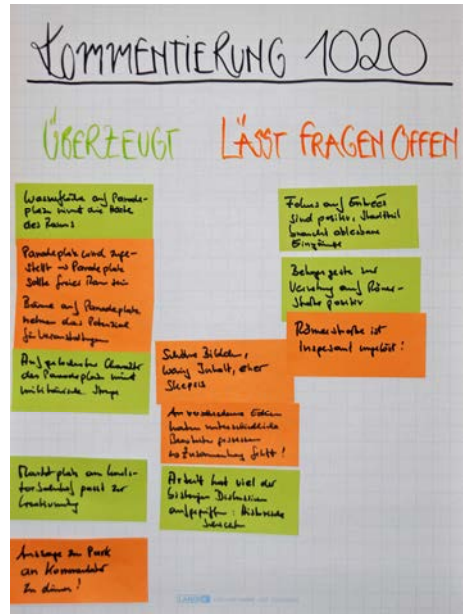 KOMMENTIERUNG 1020
ÜBERZEUGT
LÄSST FRAGEN OFFEN
Wasserfläche auf Parade-
platz nimmt die Härte
des Raums
Paradeplatz wird zuge-
stellt → Paradeplatz
sollte freier Raum sein
Bäume auf Paradeplatz
nehmen das Potenzial
für Veranstaltungen
Charakter
des Paradeplatz nimmt
militärische Strenge
Marktplatz am
passt zur
an Kommandatur
zu dünn!
Schöne Bilder,
wenig Inhalt, eher
Skepsis
An verschiedenen Ecken
haben unterschiedliche
Bearbeiter gesessen
→ Zusammenhang fehlt!
Arbeit hat viel der
bisherigen Diskussion
aufgegriffen: Historische
Fokus auf Entrées
sind positiv,
braucht ablesbare
Eingänge
zur
auf Römer-
straße positiv
Römerstraße ist
insgesamt ungelöst!